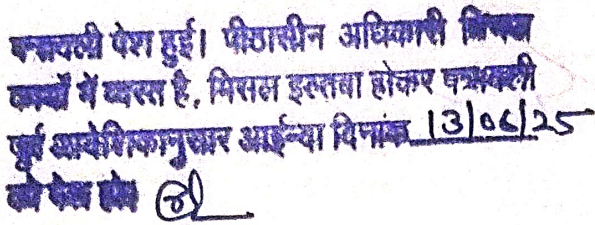 पत्रावली पेश हुई। पीठासीन अधिकारी
कार्यो में व्यस्त है, मिसल इल्तवा होकर पत्रावली
पूर्व आदेशिकानुसार आईन्दा दिनांक 13/06/25
को पेश हो।